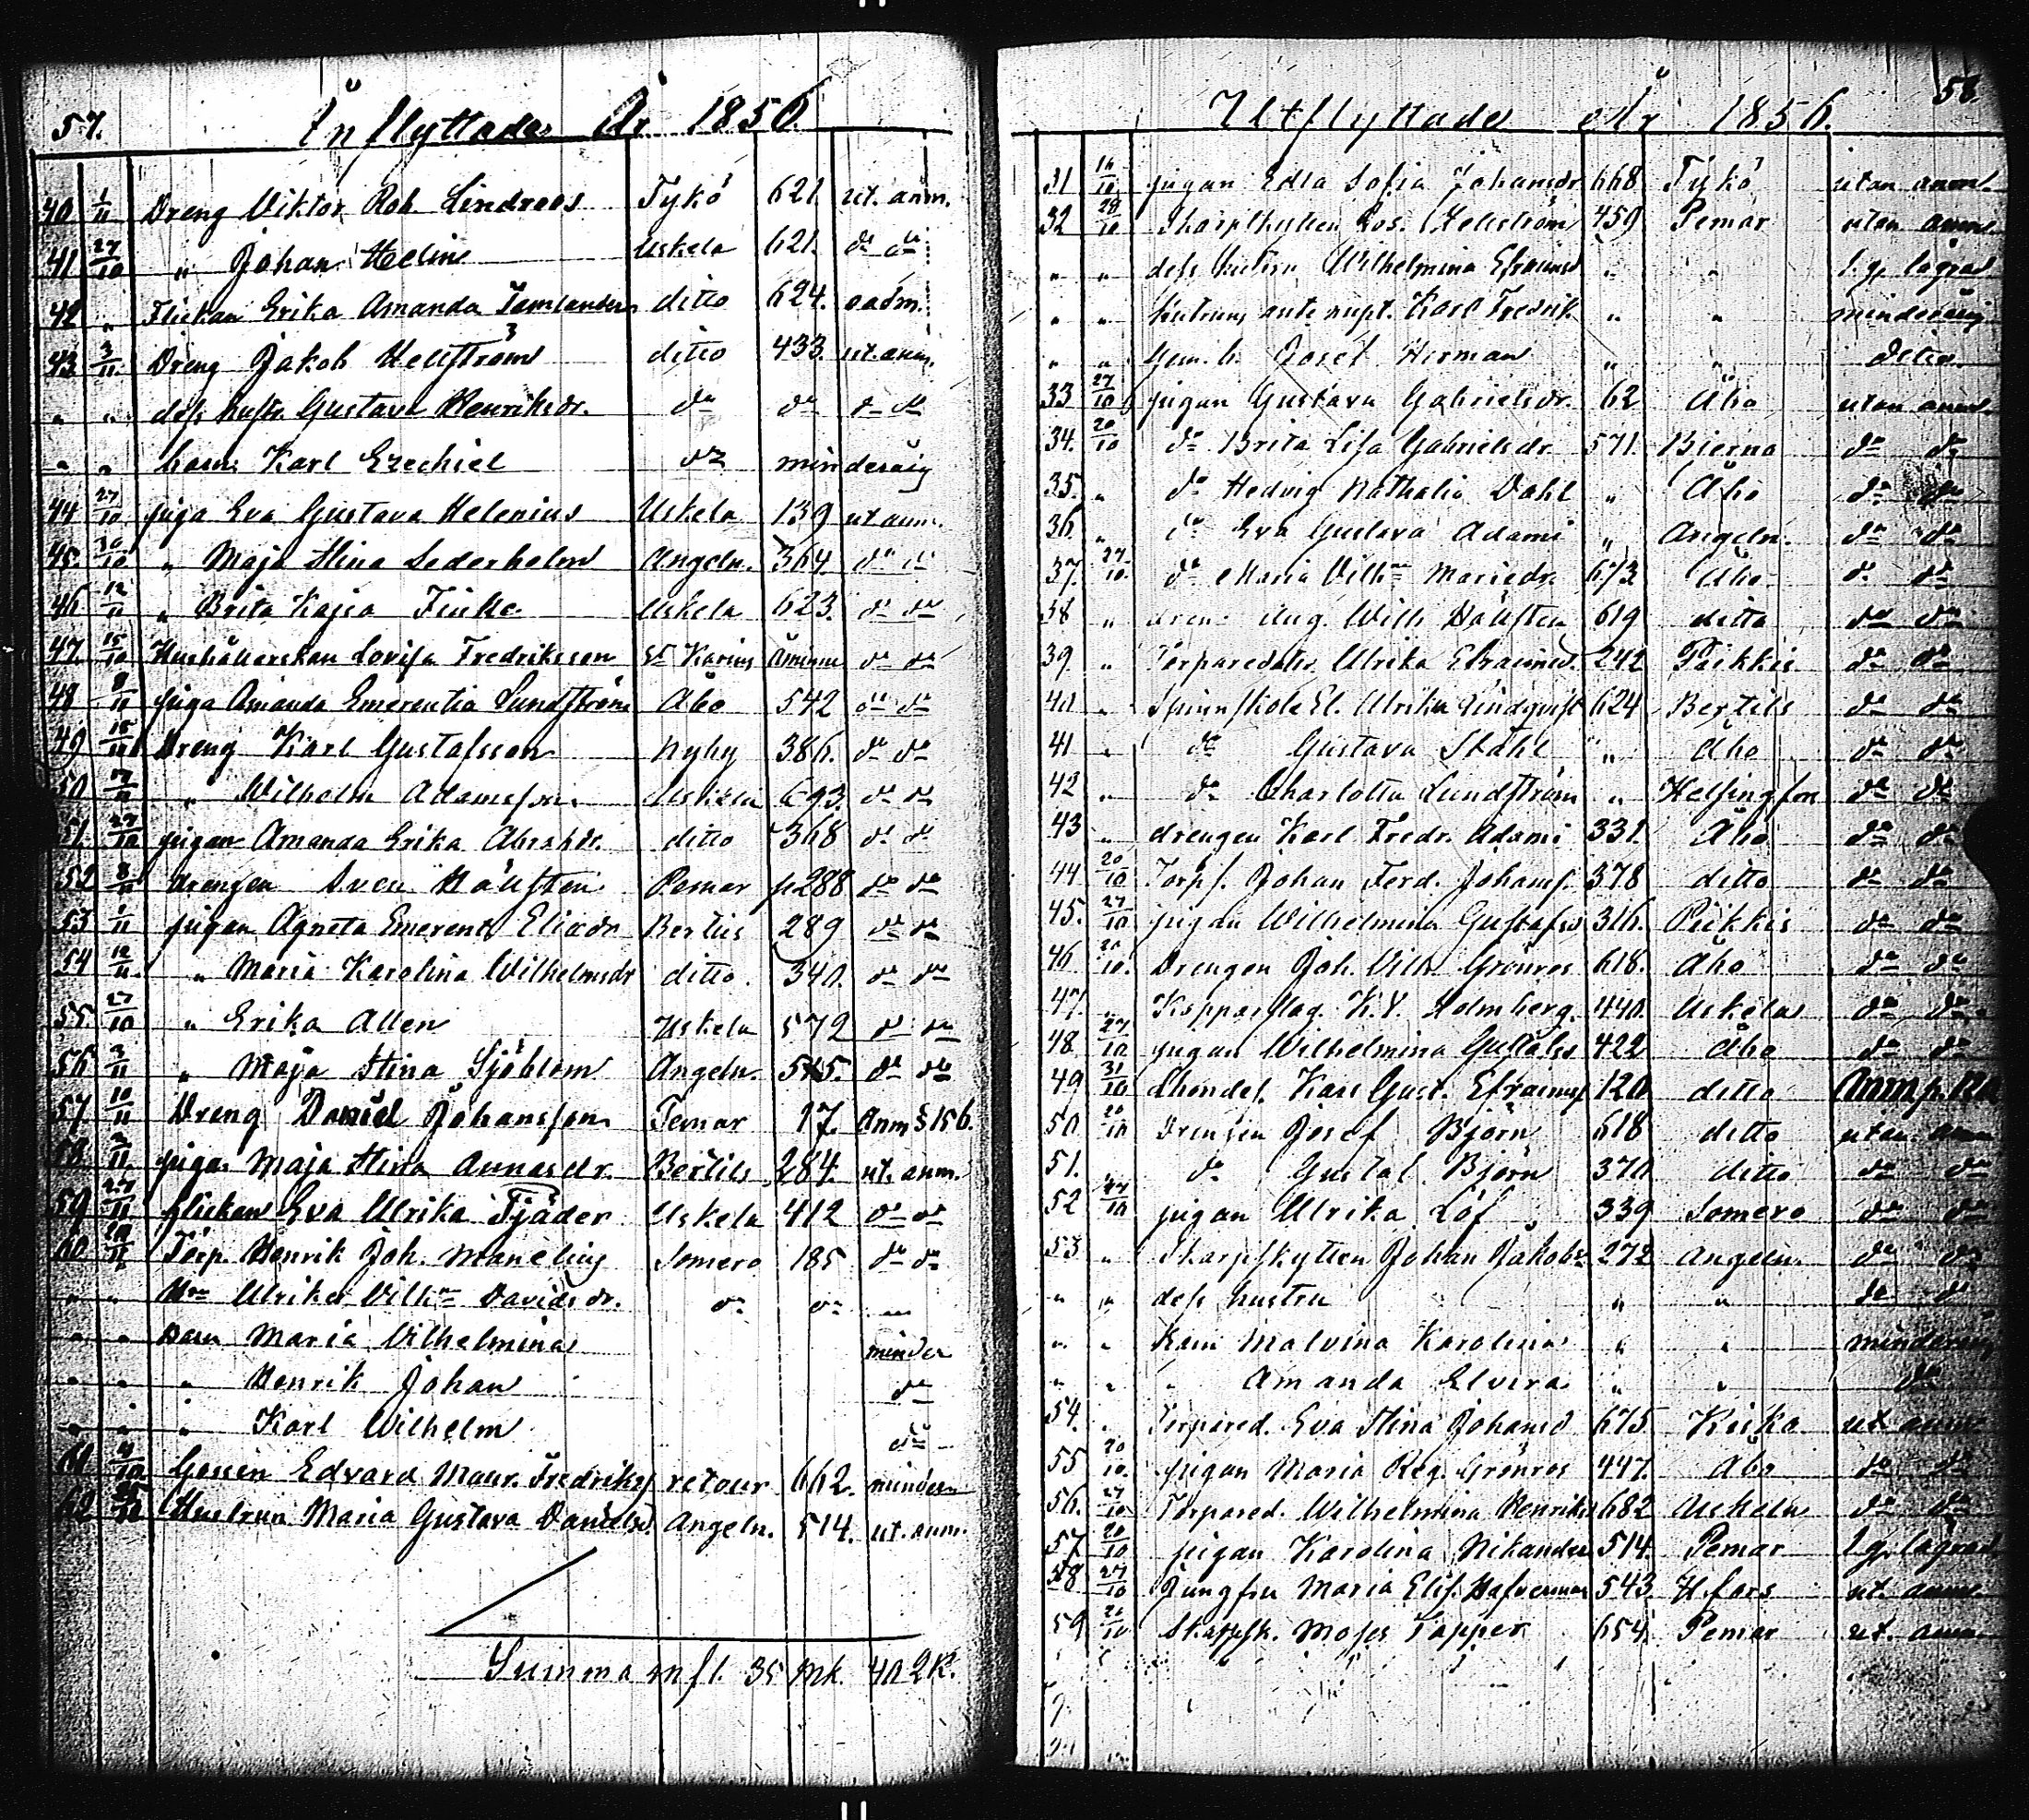 57.
Inflyttade År 1856
40 1/11 Dreng Viktor Rob. Lindroos Tykö 621. ut. anm.
41 27/10 " Johan Helin Uskela 621. do do
42 " Flickan Erika Amanda ditto 624. oadm.
43 3/11 Dreng Jakob Hellström ditto 433 ut. anm.
" " dess hustr. Gustava Henriksdr. do do do do
" " barn: Karl Ezechiel do minderåig
44 27/10 piga Eva Gustava Helenius Uskela 139 ut anm.
45. 30/10 " Maja Stina Sederholm Angeln. 364 do do
46 12/11 " Brita Kajsa Finke Uskela 623. do do
47. 15/10 Hushållerskan Lovisa Fredriksson St Karins Åminne do do
48 8/11 piga Amanda Emerentia Sundström Åbo 542 do do
49 15/11 Dreng Karl Gustafsson Nyby 386. do do
50 " Wilhelm Adamsson Uskela 693. do do
51. 27/10 pigan Amanda Erika Abrahdr. ditto 368 do do
52 8/11 drengen Sven Hällsten Pemar p288 do do
53 1/11 pigan Agneta Emerent. Eliædr Bertils 289 do do
54 12/11 " Maria Karolina Wilhelmsdr ditto. 340. do do
55 27/10 " Erika Allen Uskela 572 do do
56 3/11 " Maja Stina Sjöblom Angeln. 545. do do
57 10/11 Dreng Daniel Johansson Pemar 17. Anm § 156.
58. 2/11 piga Maja Stina Annasdr. Bertils 284. ut. anm.
59 27/11 flickan Eva Ulrika Tjäder Uskela 412 do do
60 Torp. Henrik Joh. Manelius Somero 185 do do
" " Hu Ulrika Vilhna Davidsdr. do do "
" " barn Maria Vilhelmina minder
" " " Henrik Johan do
" " " Karl Wilhelm do
61 4/10 Gossen Edvard Maur. Fredriks retour 662. minder
62 Hustrun Maria Gustava Davidsd. Angeln. 514. ut. anm.
Summa infl. 35 Mk. 40 2K.
58.
Utflyttade År 1856.
31 16/10 pigan Edla Sofia Johansdr 668 Tykö utan anm.
32 28/10 Skarpskytten Jos. Hellström 459 Pemar utan anm.
" " dess hustru Wilhelmina Efraimsd " " l. g. lägrad
" " hustruns ante nupt. Karl Fredrik " " minderårig
" " gem. b. Josef Herman " " ditto
33 27/10 pigan Gustava Gabrielsdr. 62 Åbo utan anm.
34. 20/10 do Brita Lisa Gabrielsdr 571. Bierno do do
35. " do Hedvig Nathalia Dahl " Åbo do do
36. " do Eva Gustava Adami " Angeln. do do
37. 27/10. do Maria Vilhna Mariedr. 673. Åbo do do
38 " dren. Aug. Wilh. Hällsten 619 ditto do do
39 " Torparedotr. Ulrika Efraimsd. 242 Pikkis do do
40 " Spinnskole El. Ulrika Lindqvist 624 Bertils do do
41 " do Gustava Ståhl " Åbo do do
42 " do Charlotta Lundström " Helsingfors do do
43 " drengen Karl Fredr. Adami 331. Åbo do do
44 20/10 Torps. Johan Ferd. Johanss. 378 ditto do do
45. 27/10 pigan Wilhelmina Gustafsd 316. Pikkis do do
46 20/10. Drengen Joh. Vilh. Grönros 618. Åbo do do
47. Kopparslag. K.V. Holmberg. 440. Uskela do do
48 27/10 pigan Wilhelmina Gustafsd 422 Åbo do do
49 31/10 Karl Gust. Efraimss 120 ditto Anm p. 120
50 20/10 Drengen Josef Björn 618 ditto utan anm
51. " do Gustaf Björn 370 ditto do do
52 27/10 pigan Ulrika Löf 339 Somero do do
53 " Skarpskytten Johan Jakobs 272 Angeln. do do
" " dess hustru " " do do
" " barn Malvina Karolina " " minderårig
" " " Amanda Elvira " " do
54. " Torpared. Eva Stina Johansd 675 Kisko ut anm
55 20/10. pigan Maria Reg. Grönros 447. Åbo do do
56. 27/10 Torpared. Wilhelmina Henriks 682 Uskela do do
57 20/10 pigan Karolina Nikander 514 Pemar l.g. lägrad
58 27/10 Jungfru Maria Elis. 543. H.fors ut. anm.
59 Skarpsk. Moses Tapper 654. Pemar ut. anm.